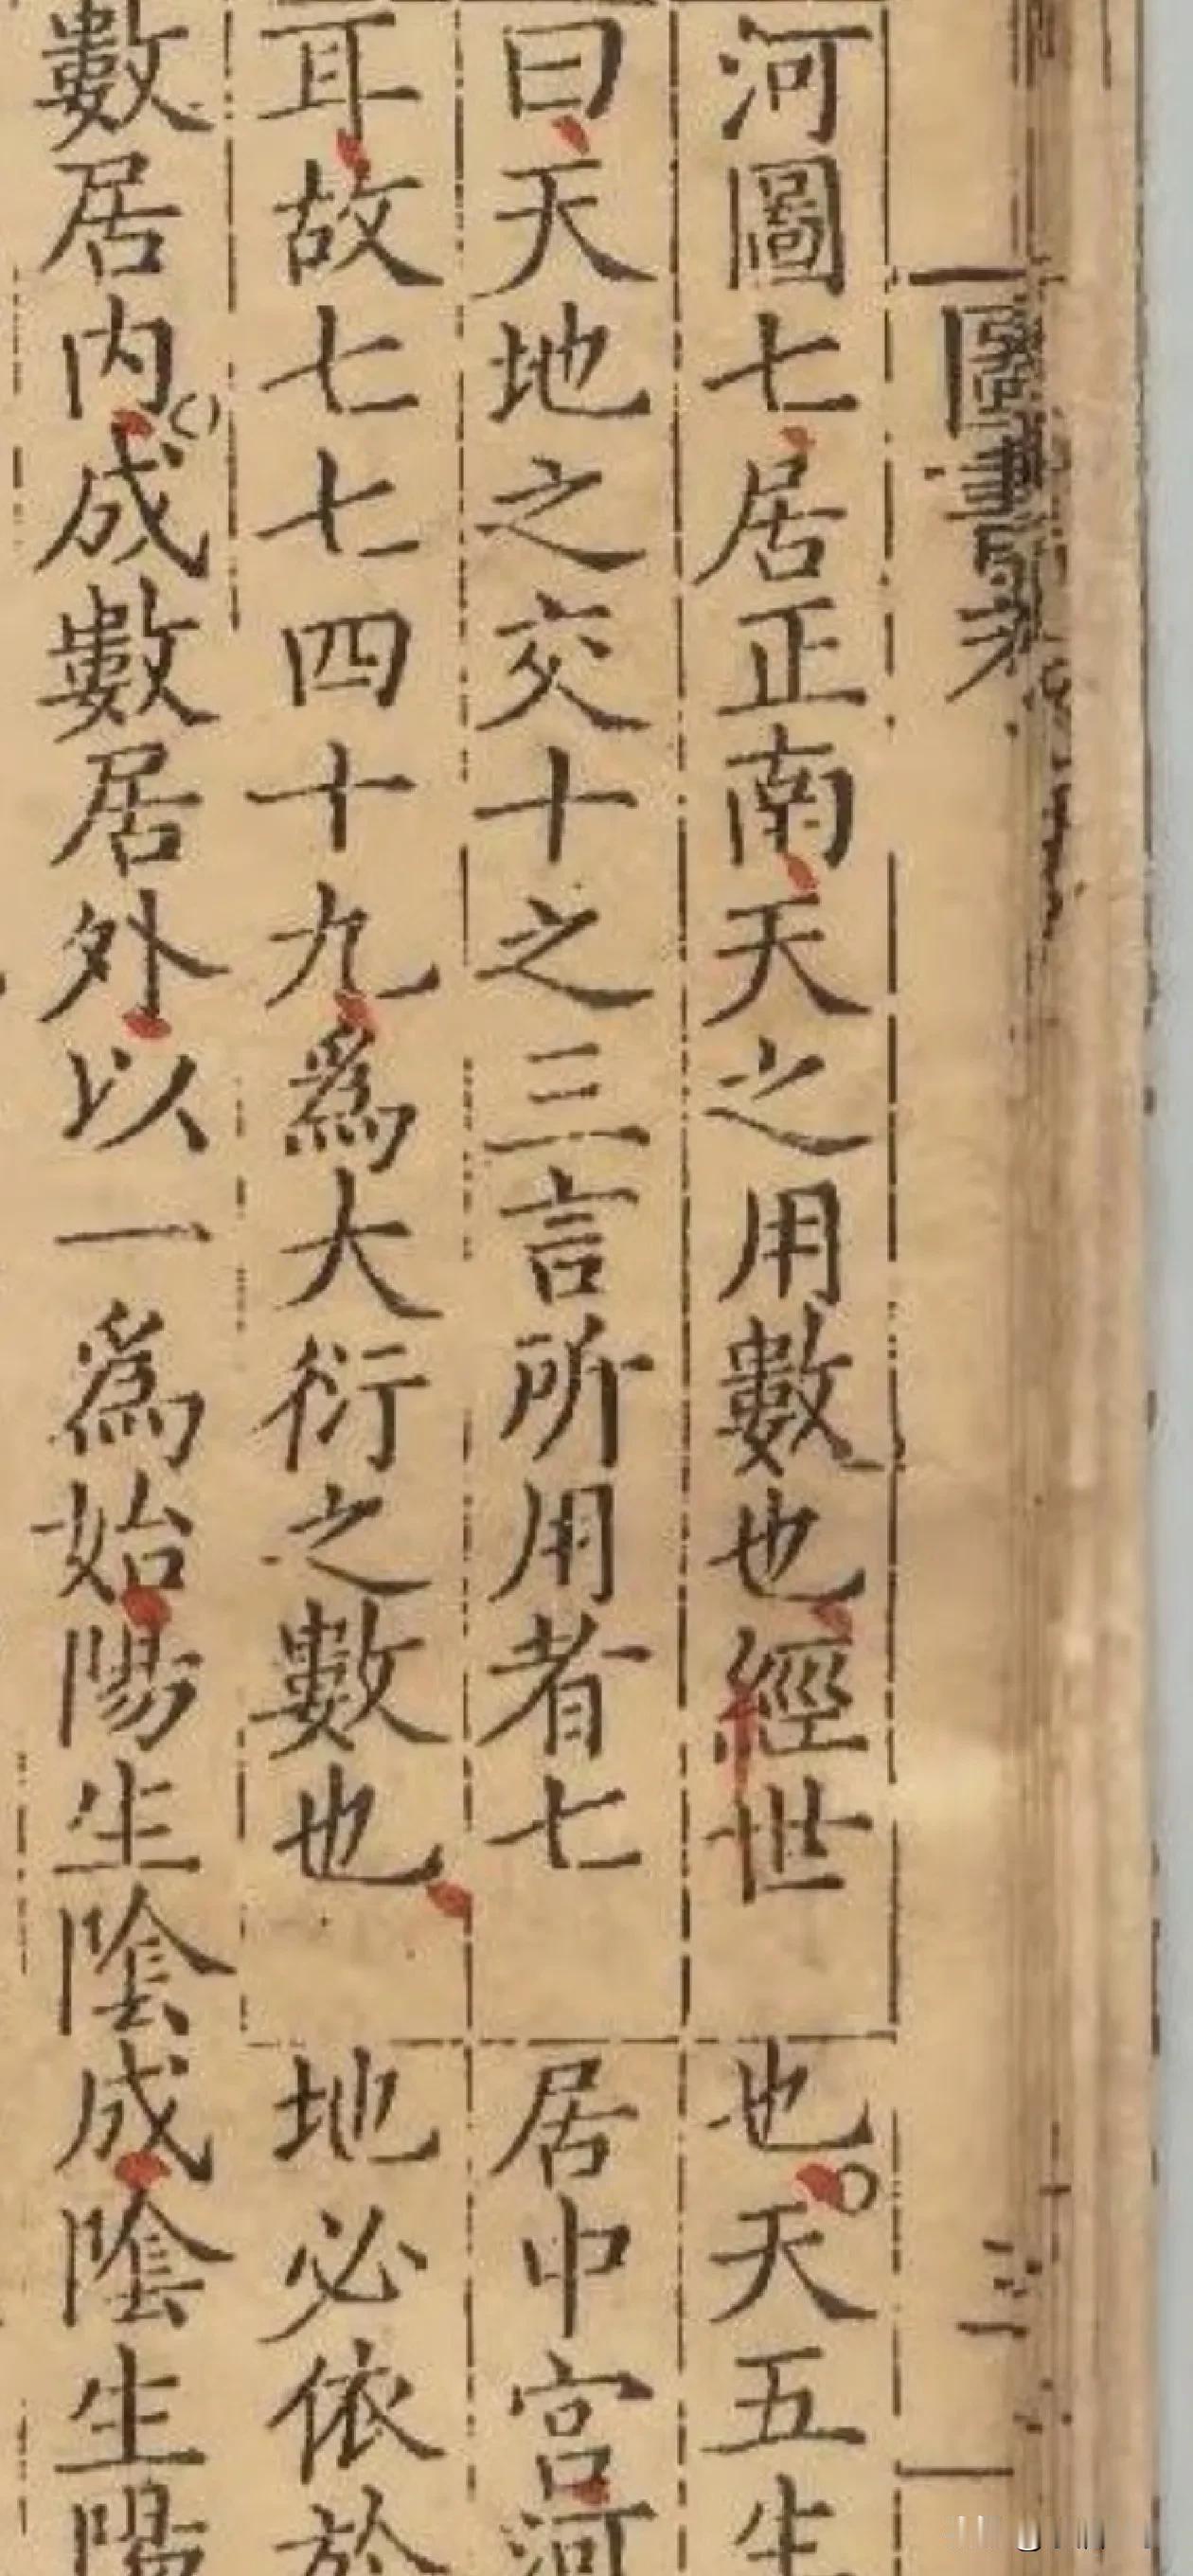 河圖七居正南天之用數也經世
曰天地之交十之三言所用者七
耳故七七四十九爲大衍之數也
也天五生
居中宮河
地必依於
數居内成數居外以一爲始陽生陰成陰生陽
圖書
三